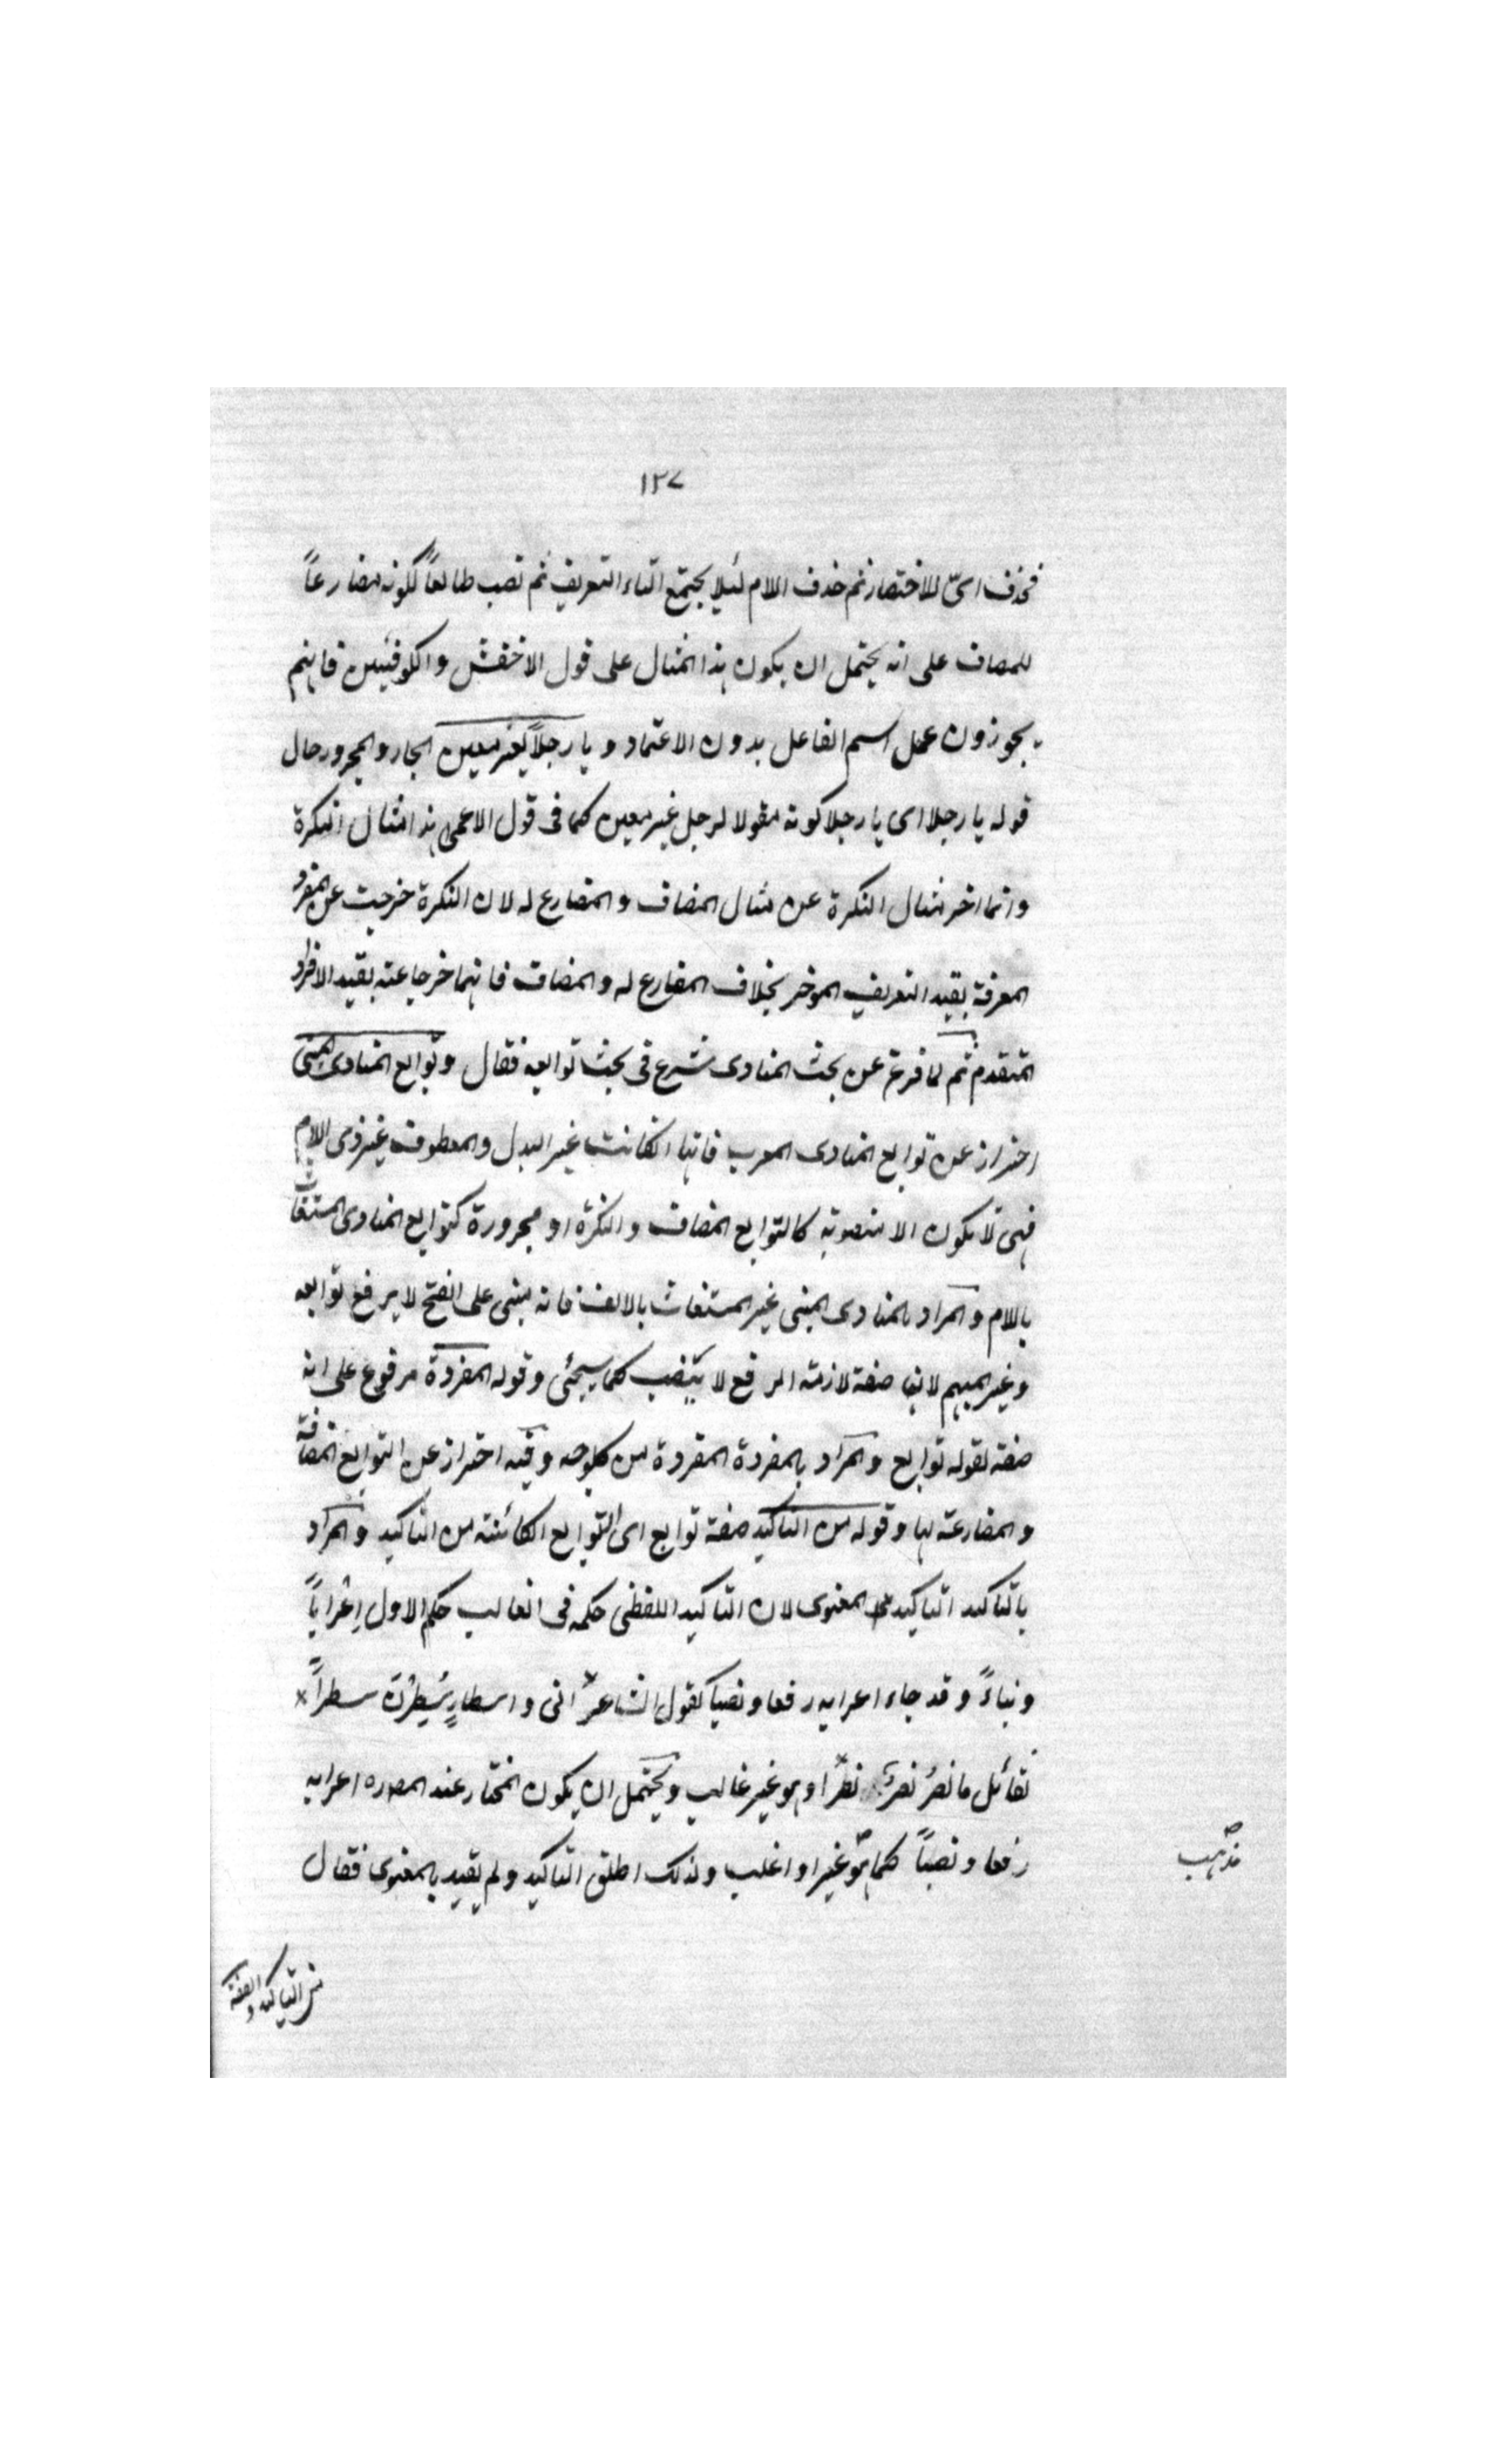 ١٢٧
فحذف اىّ للاختصار ثم حذف اللام لئلا يجتمع التاء التعريف ثم نصب طالعاً لكونه مضارعاً
للمضاف على انه يحتمل ان يكون هذا المثال على قول الاخفش والكوفيين فانهم
يجوزون عمل اسم الفاعل بدون الاعتماد ويا رجلاً لغير معين الجار والمجرور حال
قوله يا رجلا اى يا رجلا كونه مقولا لرجل غير معين كما فى قول الاعمى هذا مثال النكرة
وانما اخر مثال النكرة عن مثال المضاف والمضارع له لان النكرة خرجت عن المفرد
المعرفة بقيد التعريف الموخر بخلاف المضارع له والمضاف فانهما خرجا عنه بقيد الافراد
المتقدم ثم لما فرغ عن بحث المنادى شرع فى بحث توابعه فقال وتوابع المنادى المبنى
احتراز عن توابع المنادى المعرب فانها انكانت غير البدل والمعطوف غير ذى اللام
فهى لا يكون الا منصوبة كالتوابع المضاف والنكرة او مجرورة كتوابع المنادى المستغاث
باللام والمراد بالمنادى المبنى غير المستغاث بالالف فانه مبنى على الفتح لا يرفع توابعه
وغير المبهم لانها صفة لازمة الرفع لا ينتصب كما سيجئى وقوله المفردة مرفوع على انه
صفة لقوله توابع والمراد بالمفردة المفردة من كل وجه وفيه احتراز عن التوابع المضافة
والمضارعة لها وقوله من التاكيد صفة توابع اى التوابع الكائنة من التاكيد والمراد
بالتاكيد التاكيد المعنوى لان التاكيد اللفظى حكمه فى الغالب حكم الاول اِعْراباً
وبناءً وقد جاء اعرابه رفعا ونصباً كقول الشاعر انى واسطارٍ سُطِرْنَ سطراً
لقائل ما نصرُ نصرٌ نصرًا وهو غير غالب ويحتمل ان يكون المختار عند المصر اعرابه
رفعا ونصباً كما هو غير او اغلب ولذلك اطلق التاكيد ولم يقيد بالمعنوى فقال
مذهب
من التاكيد والصفة